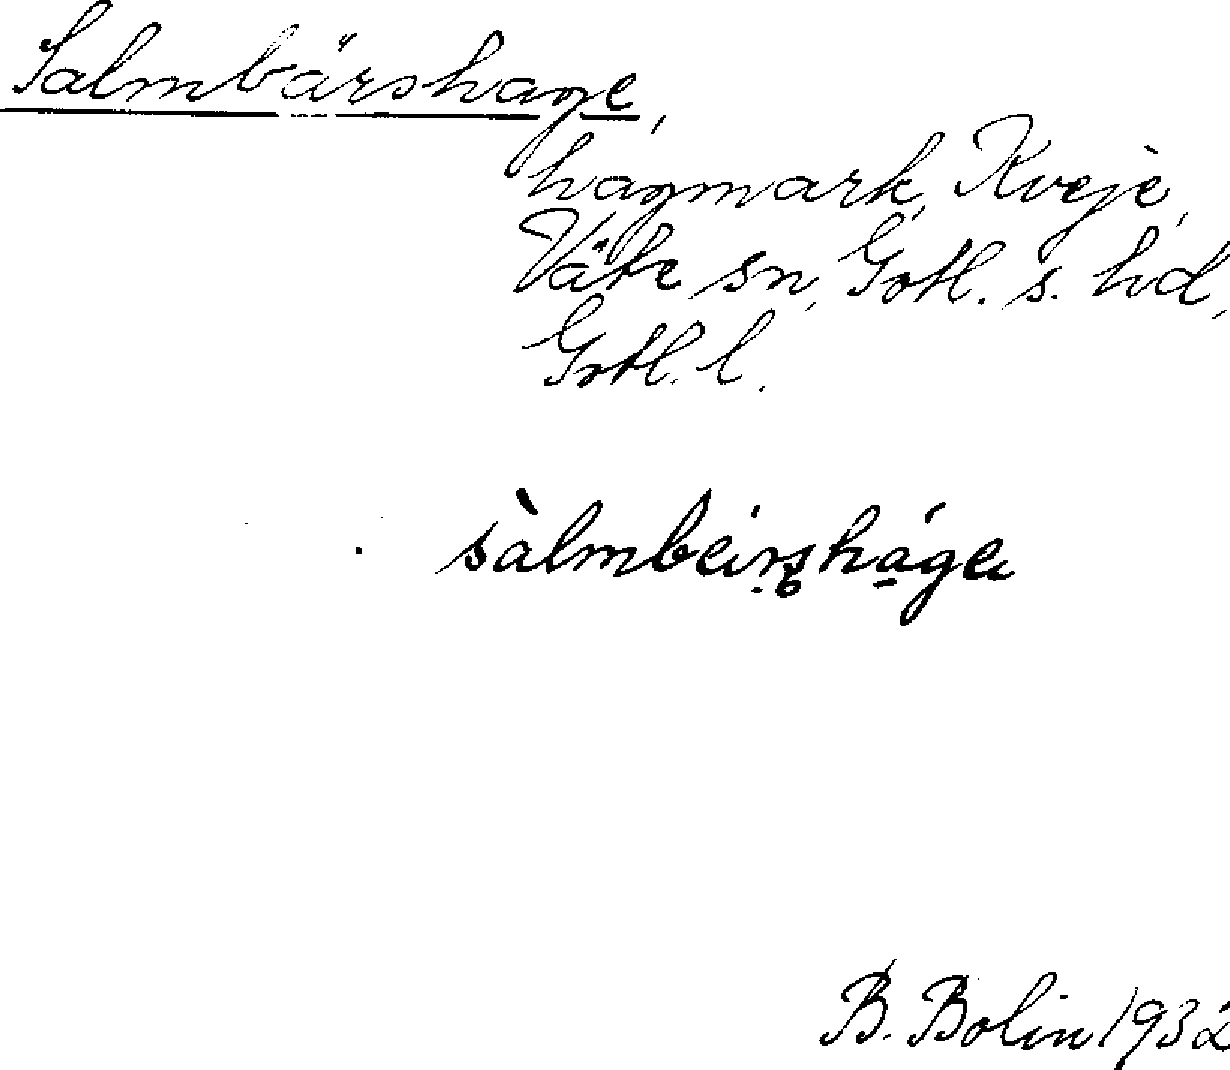 Salmbärshage,
hagmark, Kveje,
Väte sn, Gotl. s. hd,
Gotl. l.
sàlmbeirsháge
B. Bolin 1932